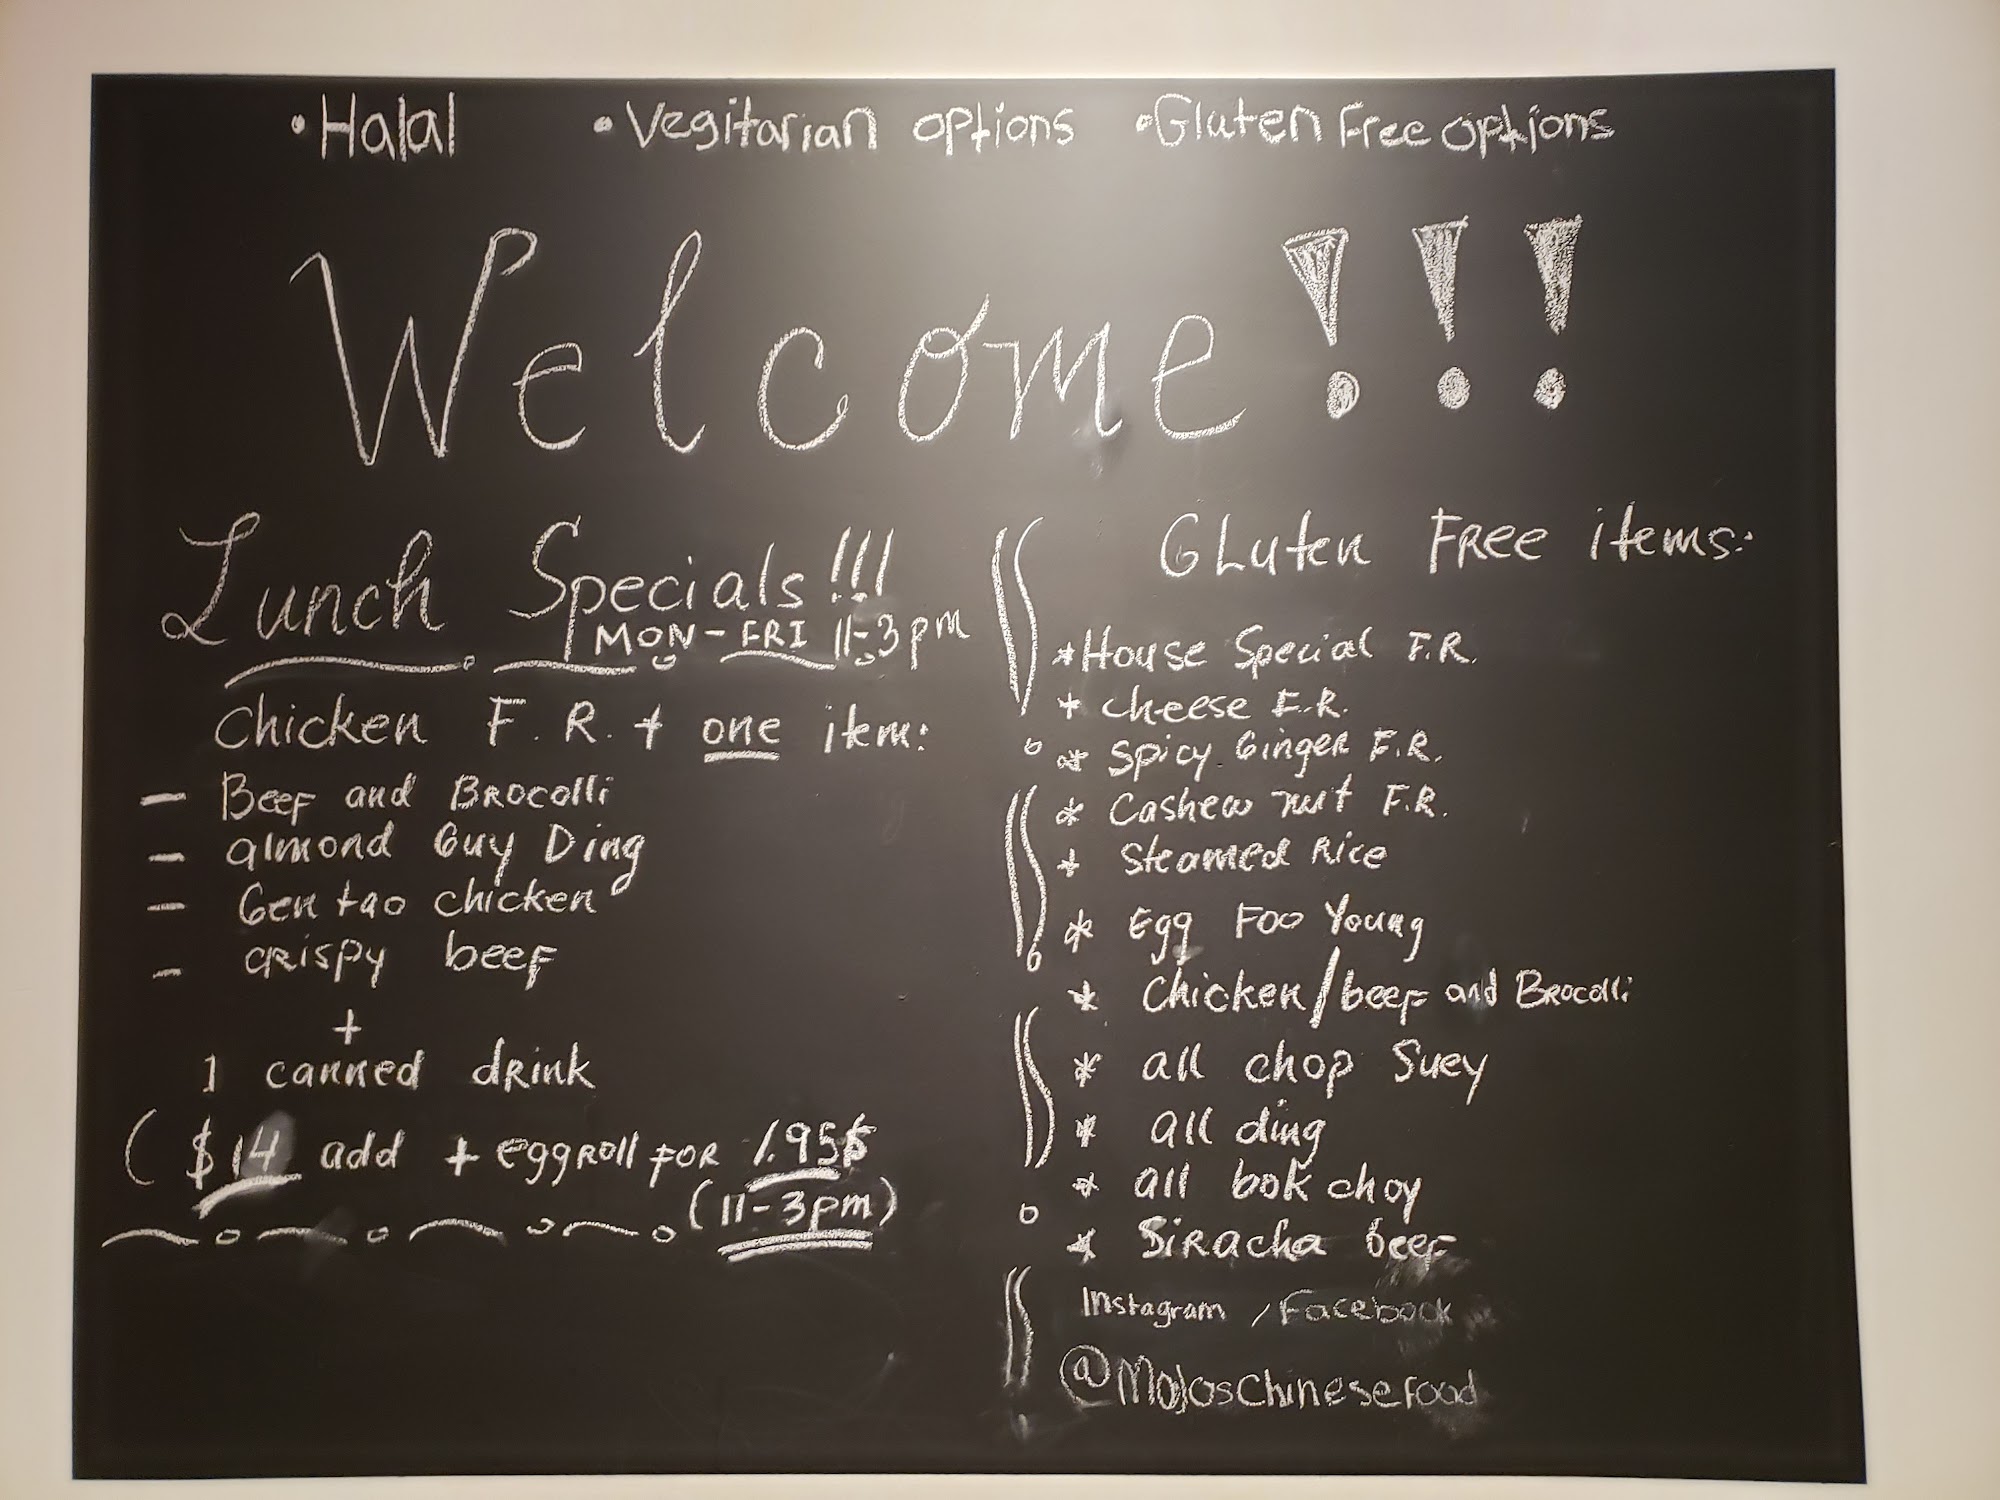 • Halal • Vegitarian options • Gluten Free options
Welcome!!!
Lunch Specials!!!
MON-FRI 11-3pm
Chicken F.R. + one item:
- Beef and Brocolli
- almond Guy Ding
- Gen tao chicken
- crispy beef
+
1 canned drink
( $14 add + eggroll for 1.95$
(11-3pm)
Gluten Free items:
* House Special F.R.
+ cheese F.R.
* Spicy Ginger F.R.
* Cashew nut F.R.
+ Steamed Rice
* Egg Foo Young
* Chicken/beef and Brocolli
* all chop Suey
* all ding
* all bok choy
* Siracha beef
Instagram / Facebook
@MojosChinesefood